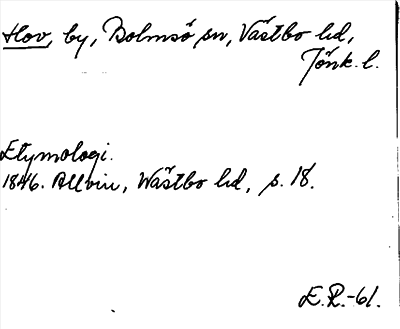 Hov, by, Bolmsö sn, Västbo hd,
Jönk. l.
Etymologi.
1846. Allvin, Wästbo hd, s. 18.
E.R.-61.